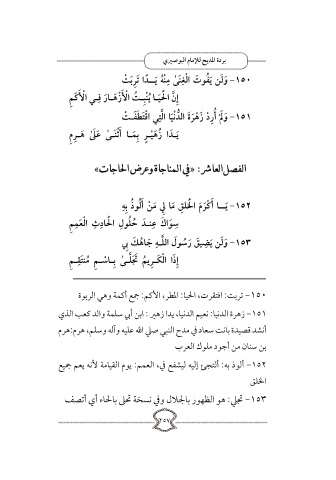 بردة المديح للإمام البوصيري
١٥٠- وَلَن يَفُوتَ الْغِنَىٰ مِنْهُ يَدًا تَرِبَتْ
إِنَّ الْحَيَا يُنْبِتُ الْأَزْهَارَ فِي الْأَكَمِ
١٥١- وَلَمْ أُرِدْ زَهْرَةَ الدُّنْيَا الَّتِي اقْتَطَفَتْ
يَدَا زُهَيْرٍ بِمَا أَثْنَىٰ عَلَىٰ هَرِمِ
الفصل العاشر: «في المناجاة وعرض الحاجات»
١٥٢- يَا أَكْرَمَ الْخَلْقِ مَا لِي مَنْ أَلُوذُ بِهِ
سِوَاكَ عِندَ حُلُولِ الْحَادِثِ الْعَمِمِ
١٥٣- وَلَن يَضِيقَ رَسُولَ اللَّهِ جَاهُكَ بِي
إِذَا الْكَرِيمُ تَجَلَّىٰ بِاسْمِ مُنتَقِمِ
١٥٠- تربت: افتقرت، الحيا: المطر، الأكم: جمع أكمة وهي الربوة
١٥١- زهرة الدنيا: نعيم الدنيا، يدا زهير: ابن أبي سلمة والد كعب الذي
أنشد قصيدة بانت سعاد في مدح النبي صلى الله عليه وآله وسلم، هرم: هرم
بن سنان من أجود ملوك العرب
١٥٢- ألوذ به: ألتجئ إليه ليشفع في، العمم: يوم القيامة لأنه يعم جميع
الخلق
١٥٣- تجلى: هو الظهور بالجلال وفي نسخة تحلى بالحاء أي أتصف
٢٥٧